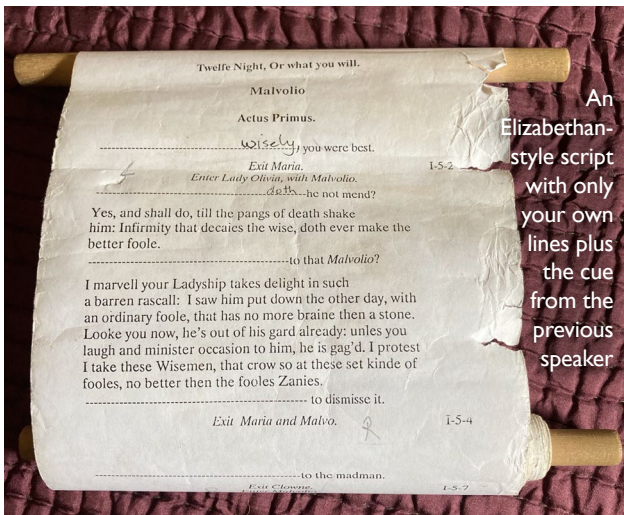 Twelfe Night, Or what you will.
Malvolio
Actus Primus.
------------------------------wisely, you were best.
Exit Maria. I-5-2
Enter Lady Olivia, with Malvolio.
------------------------------doth---he not mend?
Yes, and shall do, till the pangs of death shake
him: Infirmity that decaies the wise, doth ever make the
better foole.
------------------------------to that Malvolio?
I marvell your Ladyship takes delight in such
a barren rascall: I saw him put down the other day, with
an ordinary foole, that has no more braine then a stone.
Looke you now, he's out of his gard already: unles you
laugh and minister occasion to him, he is gag'd. I protest
I take these Wisemen, that crow so at these set kinde of
fooles, no better then the fooles Zanies.
------------------------------ to dismisse it.
Exit Maria and Malvo. R I-5-4
------------------------------to the madman.
Exit Clowne. I-5-7
An
Elizabethan-
style script
with only
your own
lines plus
the cue
from the
previous
speaker